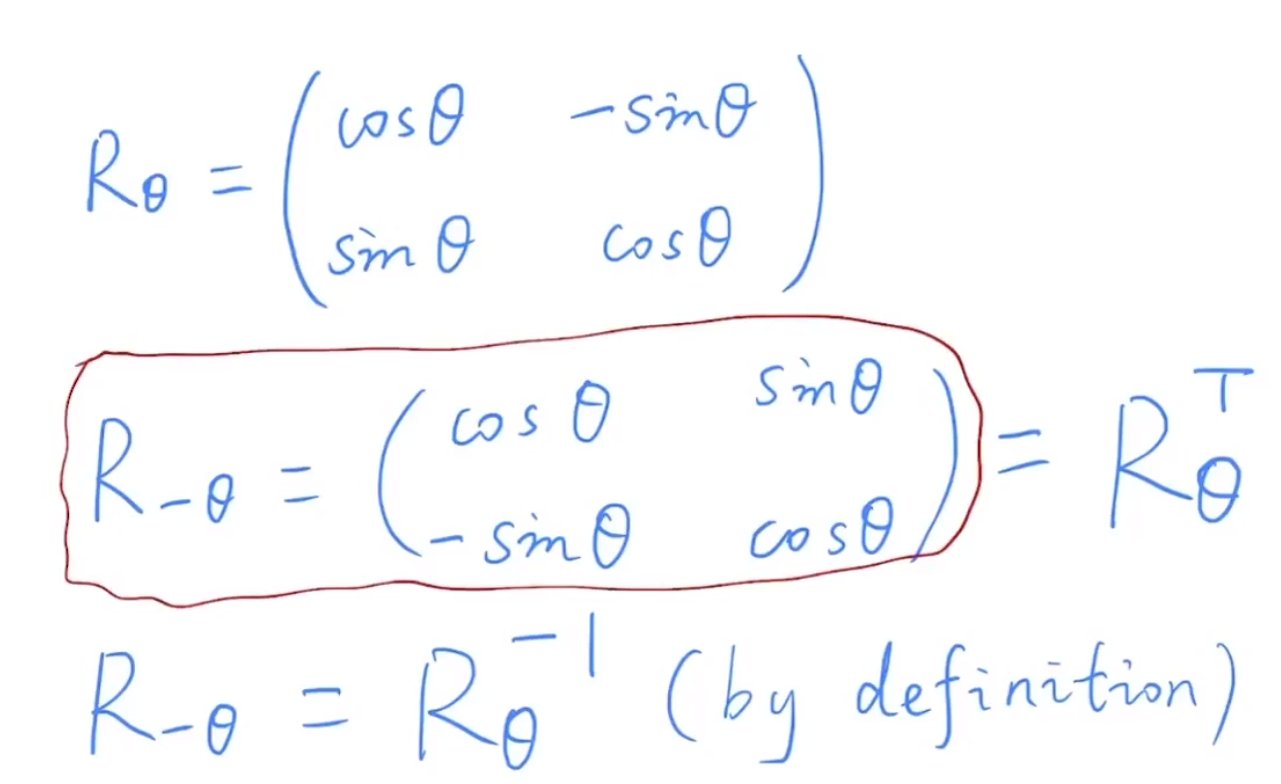 R_θ = ( cosθ  -sinθ
sinθ  cosθ )
R_{-θ} = ( cos θ  sinθ
-sinθ  cosθ ) = R_θ^T
R_{-θ} = R_θ^{-1} (by definition)